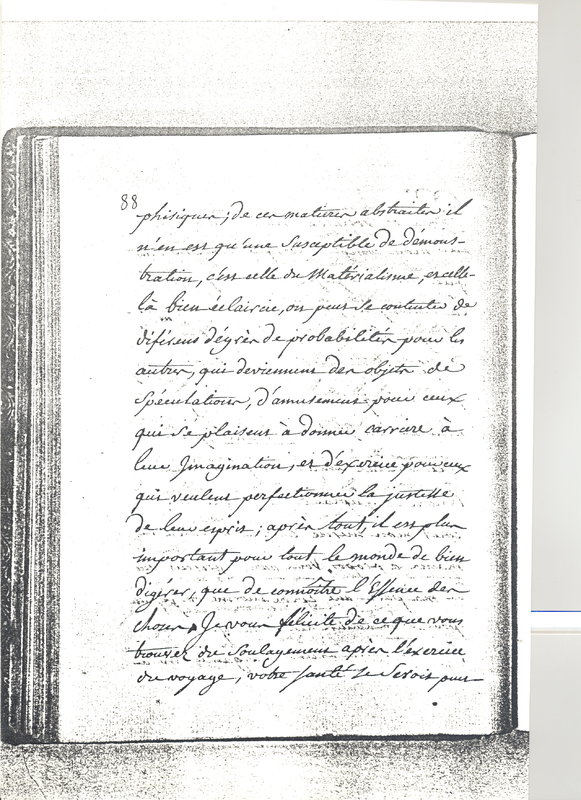 88
phisiques; de ces matieres abstraites il
n'en est qu'une Susceptible de démons-
tration, c'est celle du Matérialisme, et celle-
là bien éclaircie, on peut se contenter de
diférens dégrès de probabilités pour les
autres, qui deviennent des objets de
Spéculations, d'amusement pour ceux
qui se plaisent à donner carriere à
leur Imagination, et d'exercice pour ceux
qui veulent perfectionner la justesse
de leur esprit; après tout, il est plus
important pour tout le monde de bien
digérer, que de connoître l'Essence des
choses. Je vous félicite de ce que vous
trouvez du Soulagement après l'exercice
du voyage, votre santé se seroit peut